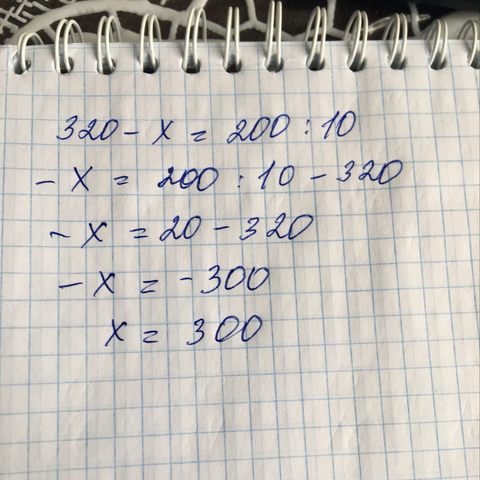 320 - x = 200 : 10
- x = 200 : 10 - 320
- x = 20 - 320
- x = - 300
x = 300